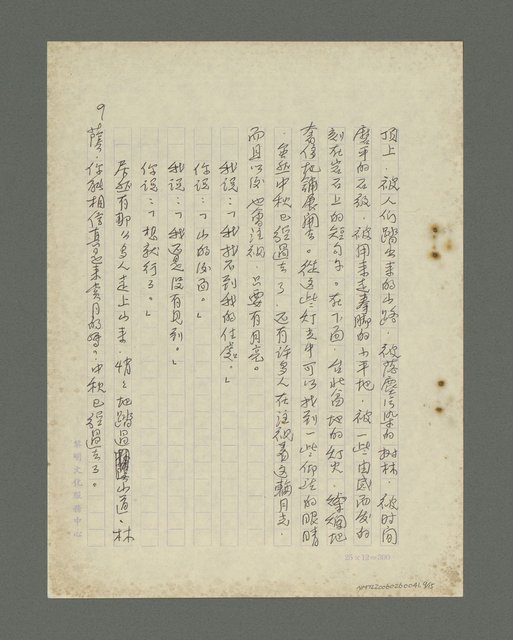 頂上．被人們踏出來的山路．被落塵污染的樹林．被時間
磨平的石級．被用來走拳腳的小平地．被一些由感而發的
刻在岩石上的短句子。在下面．台北盆地的灯火．繽紛地
奢侈地鋪展開去。從這些灯光中可以找到一些仰望的眼睛
．虽然中秋已經過去了．还有許多人在注視着这輪月光．
而且以後也會注視．只要有月亮。
我說：「我找不到我的住處。」
你說：「山的後面。」
我說：「我还是没有見到。」
你說：「想就行了。」
居然有那么多人走上山來．悄々地踏過山道．林
蔭．你能相信真是來賞月的嗎？．中秋已經過去了。
9
黎明文化服務中心
25×12=300
NMTL20060260041 9/15